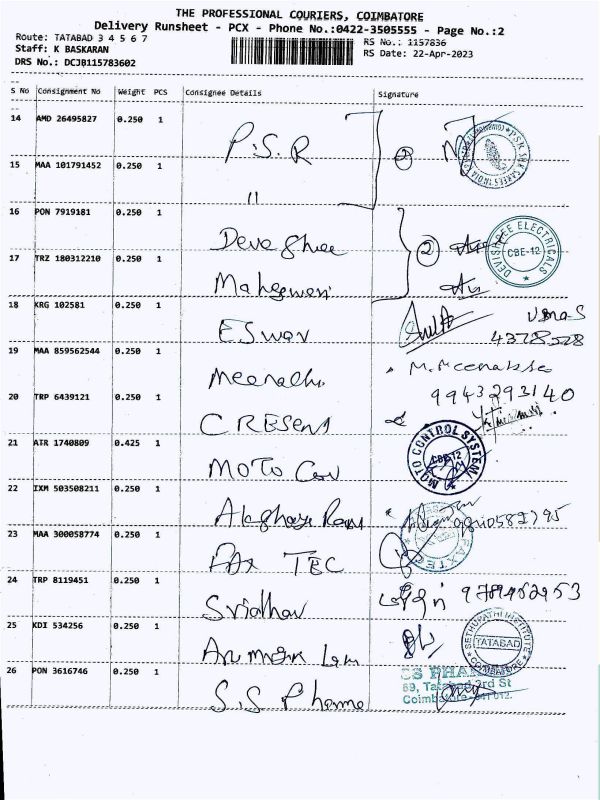 THE PROFESSIONAL COURIERS, COIMBATORE
Delivery Runsheet - PCX - Phone No.:0422-3505555 - Page No.:2
Route: TATABAD 3 4 5 6 7
RS No.: 1157836
Staff: K BASKARAN
RS Date: 22-Apr-2023
DRS No.: DCJB115783602
S No Consignment No Weight PCS Consignee Details Signature
14 AMD 26495827 0.250 1 P.S.R
15 MAA 101791452 0.250 1 "
16 PON 7919181 0.250 1 Deva Shree 2 DEVISHREE ELECTRICALS CBE-12
17 TRZ 180312210 0.250 1 Maheswari
18 KRG 102581 0.250 1 ESwar
19 MAA 859562544 0.250 1 Meenakhi M. Meenakshi
9943293140
20 TRP 6439121 0.250 1 CRESENT
21 ATR 1740809 0.425 1 MOTO Con MOTO CONTROL SYSTEM CBE-12
22 IXM 503508211 0.250 1
23 MAA 300058774 0.250 1 PAX TEC PAXTEC
24 TRP 8119451 0.250 1 Sridhar
25 KDI 534256 0.250 1 SETHUPATHI INSTITUTE TATABAD COIMBATORE
26 PON 3616746 0.250 1 S.S Pharma
69, Tatabad 3rd St